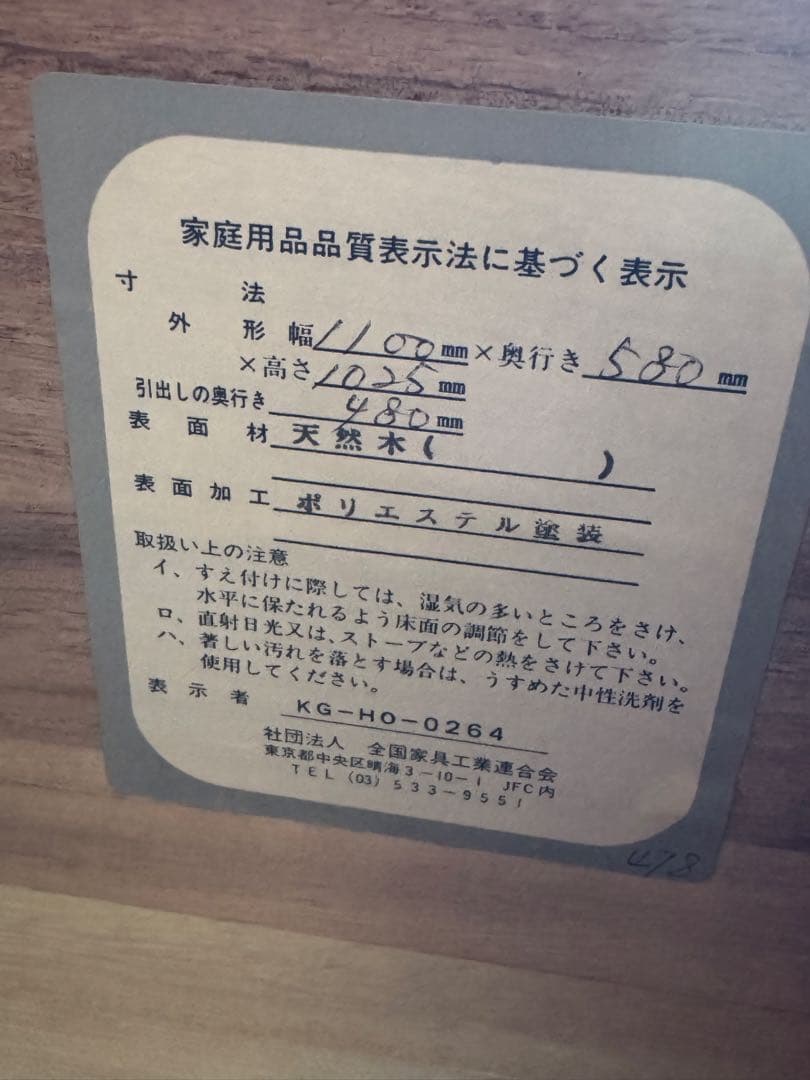 家庭用品品質表示法に基づく表示
寸法
外形 幅1100mm×奥行き580mm
×高さ1025mm
引出しの奥行き480mm
表面材 天然木( )
表面加工 ポリエステル塗装
取扱い上の注意
イ、すえ付けに際しては、湿気の多いところをさけ、
水平に保たれるよう床面の調節をして下さい。
ロ、直射日光又は、ストーブなどの熱をさけて下さい。
ハ、著しい汚れを落とす場合は、うすめた中性洗剤を
使用してください。
表示者 KG-HO-0264
社団法人 全国家具工業連合会
東京都中央区晴海3-10-1 JFC内
TEL (03) 533-9551
478